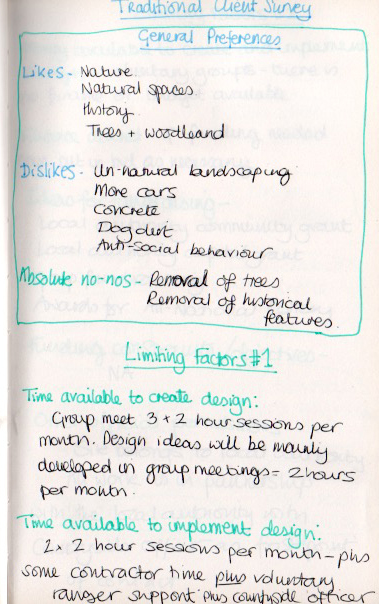 Traditional Client Survey
General Preferences
Likes - Nature
Natural spaces
History
Trees + woodland
Dislikes - Un-natural landscaping
More cars
Concrete
Dog dirt
Anti-social behaviour
Absolute no-nos - Removal of trees
Removal of historical
features.
Limiting Factors #1
Time available to create design:
Group meet 3 + 2 hour sessions per
month. Design ideas will be mainly
developed in group meetings = 2 hours
per month.
Time available to implement design:
2 x 2 hour sessions per month - plus
some contractor time plus voluntary
ranger support plus countryside officer